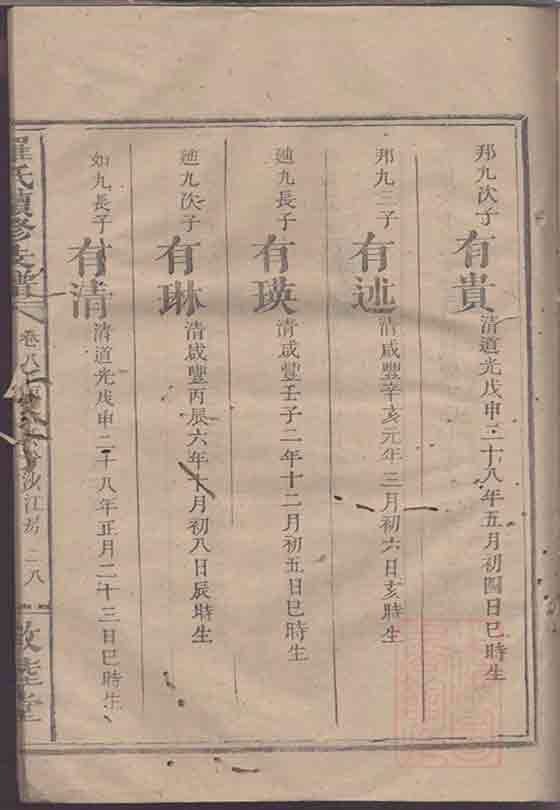 邦九次子 有貴 清道光戊申二十八年五月初四日巳時生
邦九三子 有述 清咸豐辛亥元年三月初六日亥時生
迪九長子 有瑛 清咸豐壬子二年十二月初五日巳時生
迪九次子 有琳 清咸豐丙辰六年十月初八日辰時生
如九長子 有清 清道光戊申二十八年正月二十三日巳時生
羅氏續修支譜 卷八 沙江房 二八 敦睦堂